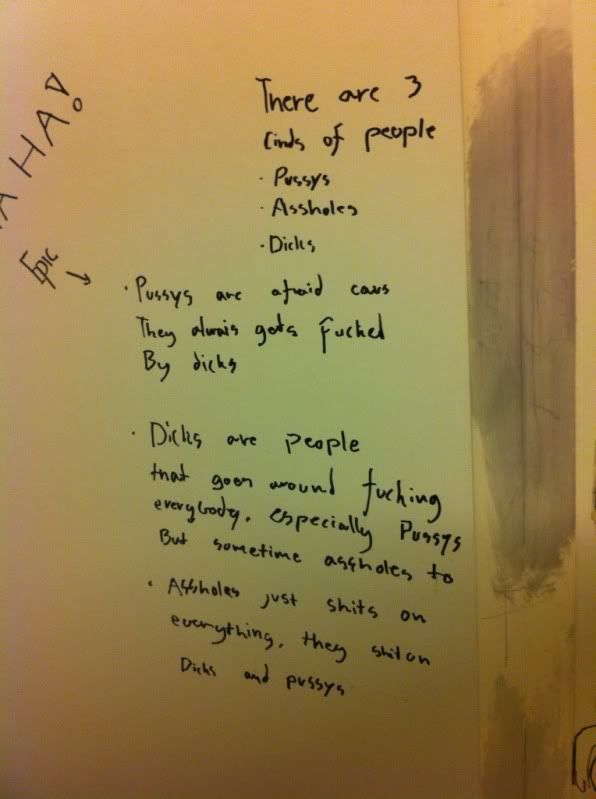 AHA!
Epic
There are 3
Cinds of people
· Pussys
· Assholes
· Dicks
· Pussys are afraid caus
They alwais gets fucked
By dicks
· Dicks are people
that goes around fucking
everybody, especially Pussys
But sometime assholes to
· Assholes just shits on
everything, they shit on
Dicks and pussys